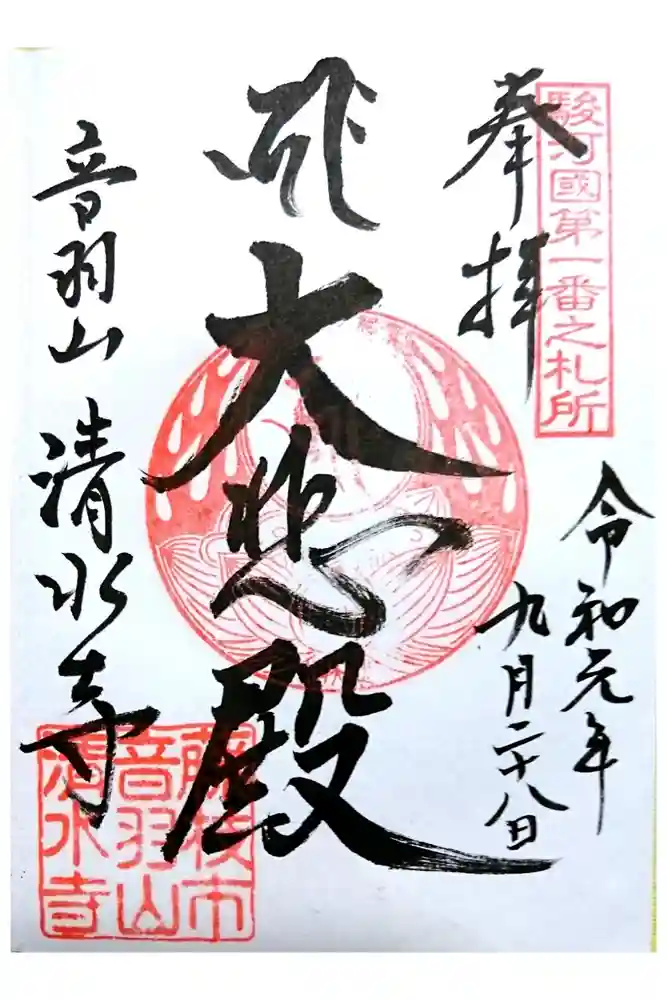 駿河國第一番之札所
奉拝
令和元年
九月二十八日
大悲殿
音羽山 清水寺
藤枝市
音羽山
清水寺